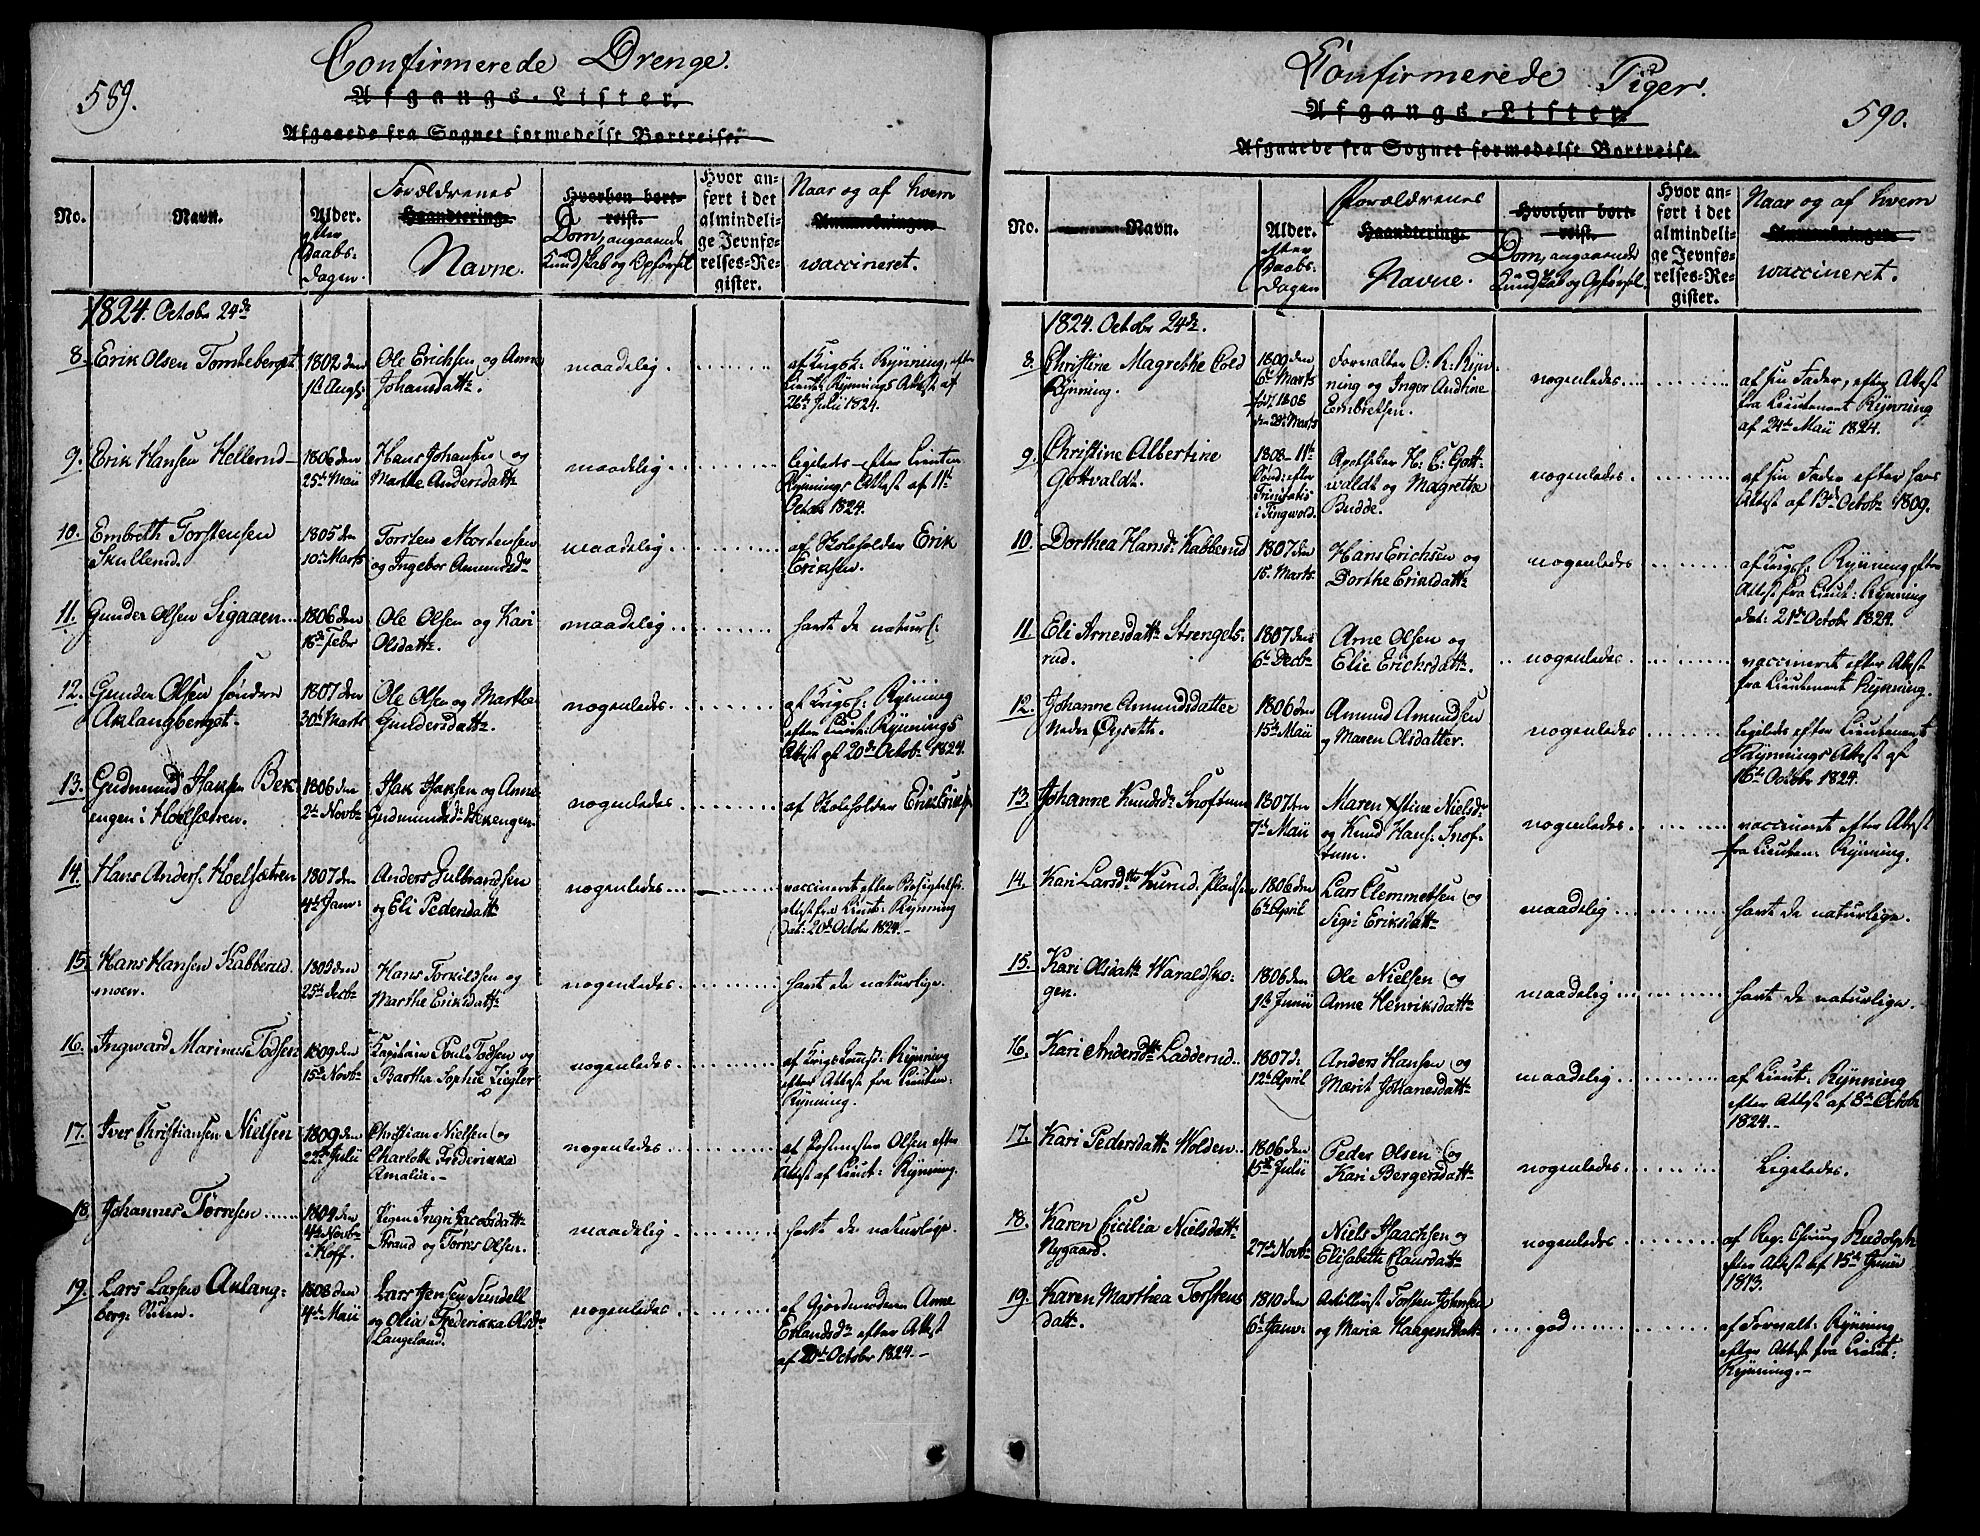 589.
Confirmerede Drenge.
Afgangs-Lister.
Afgaaede fra Sognet formedelst Bortreise.
No.
Navn.
Alder.
efter
Daabs-
dagen.
Forældrenes
Haandtering.
Navne.
Hvorhen bort-
reist.
Dom, angaaende
Kundskab og Opførsel
Hvor an-
ført i det
almindeli-
ge Jevnfø-
relses-Re-
gister.
Naar og af hvem
Anmerkninger.
vaccineret.
1824. Octobr 24de
8. Erik Olsen Tomteberget
1802 den
1ste Augs
Ole Erichsen og Anne
Johansdattr.
maadelig.
Rynning, efter
Lieutn Rynnings Attest af
26de Julii 1824.
9. Erik Hansen Hellerud
1806 den
25de Maii
Hans Johansen og
Marthe Andersdattr
maadelig
ligeleds efter Lieutn
Rynnings Attest af 11te
Octobr 1824.
10. Embreth Torstensen
Skullerud.
1805 den
10de Marts
Torsten Mortensen
og Ingebor Amundsdr
maadelig
af Skoleholder Erik
Eriksen.
11. Gunder Olsen Sigaaen
1806 den
16de Febr
Ole Olsen og Kari
Olsdattr.
maadelig
havt de naturl:
12. Gunder Olsen søndre
Aklangberget.
1807 den
30te Marts
Ole Olsen og Marthe
Gundersdattr.
nogenledes
af Krigsf: Rynning
efter Lieut: Rynnings
Attest af 20de Octob: 1824.
13. Gudmund Isaksen Bek-
engen i Hoelsætren.
1806 den
2den Novbr
Isak Isaksen og Anne
Gudmundsdr Bekengen
nogenledes
af Skoleholder Erik Eriks.
14. Hans Anders: Hoelsætren
1807 den
4de Janv:
Anders Gulbrandsen
og Eli Pedersdattr
nogenledes
vaccineret efter Besigtelses
attest fra Lieut: Rynning
Dat: 20de Octobr 1824.
15. Hans Hansen Kabberud
moen.
1805 den
25de Decbr
Hans Torkildsen og
Marthe Eriksdattr
nogenledes
havt de naturlige.
16. Ingward Marinus Todsen
1809 den
15de Novbr
Kapitain Poul Todsen og
Barthe Sophie Ziegler
nogenledes
af Krigs Rynning
efter Attest fra Lieuten:
Rynning.
17. Iver Christiansen Nielsen
1809 den
22de Julii
Christian Nielsen og
Charlotte Frederikka
Amalie.
nogenledes
af Postmester Olsen efter
Attest af Lieut: Rynning.
18. Johannes Torresen
1809 den
4de Novbr
i Hoff.
Pigen Ingri Jacobsdattr
Strand og Torres Olsen.
maadelig
havt de naturlige.
19. Lars Larsen Aklang-
berg: Niten.
1808 den
4de Maii
Lars Jensen Sundell
og Olia Frederikka Olsdr
Langeland.
nogenledes
af Gjordemoderen Anne
Erlandsdr efter Attest
af 20de Octobr 1824.
590.
Confirmerede Piger.
Afgangs-Lister.
Afgaaede fra Sognet formedelst Bortreise.
No.
Navn.
Alder.
efter
Daabs-
dagen
Forældrenes
Haandtering.
Navne.
Hvorhen bort-
reist.
Dom, angaaende
Kundskab og Opførsel.
Hvor an-
ført i det
almindeli-
ge Jevnfø-
relses-Re-
gister.
Naar og af hvem
Anmerkninger.
vaccineret.
1824. Octobr 24de.
8. Christine Magrethe Cold
Rynning.
1809 den
6te Marts
født 1808
den 28de Marts
Forvalter O. R. Ryn-
ning og Inger Andtine
Embretsen.
nogenledes
af sin Fader, efter Attest
fra Lieutenant Rynning
af 24de Maii 1824.
9. Christine Albertine
Gottvaldt.
1808 11te
Sønd: efter
Trinitatis
i Tingvold.
Apotheker H: C: Gott-
valdt og Magrethe
Budde.
nogenledes
af sin Fader efter hans
Attest af 13de Octobr 1809.
10. Dorthea Hansdr Kabberud
1807 den
15. Marts
Hans Erichsen og
Dorthe Eriksdattr
nogenledes
af Krigsf: Rynning efter
Attest fra Lieut: Rynning
dat: 21de Octobr 1824.
11. Eli Arnesdattr Strengels-
rud.
1807 den
6te Decbr
Arne Olsen og
Elie Erichsdattr.
nogenledes
vaccineret efter Attest
fra Lieutenant Rynning.
12. Johanne Amundsdatter
Nedre Øyseth.
1806 den
15de Maii
Amund Amundsen
og Maren Olsdatter.
nogenledes
ligeleds efter Lieutenant
Rynnings Attest af
16de Octobr 1824.
13. Johanne Knudsdr Snoftum
1807 den
7de Maii
Maren Stine Nielsdr
og Knud Hans: Snof-
tum.
nogenledes
vaccineret efter Attest
fra Lieuten: Rynning.
14. Kari Larsdttr Kurud, Pladsen
1806 den
6te April
Lars Clemmetsen og
Sigri Eriksdattr
maadelig
havt de naturlige.
15. Kari Olsdattr Waraldsko-
gen.
1806 den
1ste Junii
Ole Nielsen og
Anne Henriksdattr
maadelig
havt de naturlige.
16. Kari Andersdttr Ladderud
1807 d:
12te April
Anders Hansen og
Marit Johanesdattr
maadelig
af Lieut: Rynning
efter Attest af 8de Octobr
1824.
17. Kari Pedersdattr Wolden
1806 den
15de Julii
Peder Olsen og
Kari Bergersdattr
nogenledes
Ligeledes.
18. Karen Cicilia Nielsdattr
Nygaard.
27de Novbr
Niels Isachsen og
Elisabeth Clausdattr
nogenledes
af Reg: Chirurg Rudolph
efter Attest af 15de Junii
1813.
19. Karen Marthea Torstens
datt.
1810 den
6te Janv:
Artillerist Torsten Johnsen
og Maria Haagensdattr
god
af Forvalt: Rynning
efter Attest fra Lieut:
Rynning.